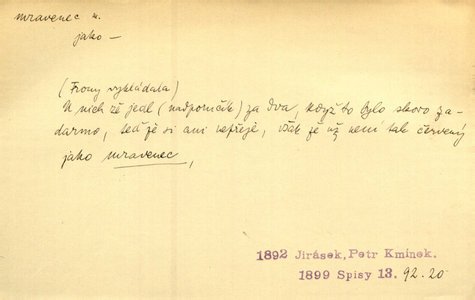 mravenec m.
jako –
(Frony vykládala)
U nich že jedl (nadporučík) za dva, když to bylo skoro za-
darmo, teď že si ani nepřeje, však že už není tak červený
jako mravenec,
1892 Jirásek, Petr Kmínek.
1899 Spisy 13. 92.20